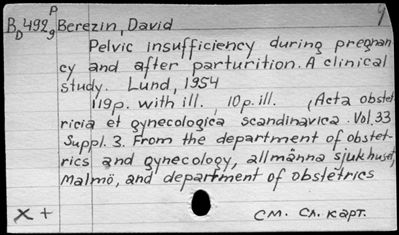 P
B_D 492 g Berezin, David
9
Pelvic insufficiency during pregnan
cy and after parturition. A clinical
study. Lund, 1954
119p. with ill. 10p. ill. (Acta obstet
ricia et gynecologica scandinavica. Vol. 33
Suppl. 3. From the department of obstet-
rics and gynecology, allmänna sjukhuset,
Malmö, and department of obstetrics
X +
см. сл. карт.